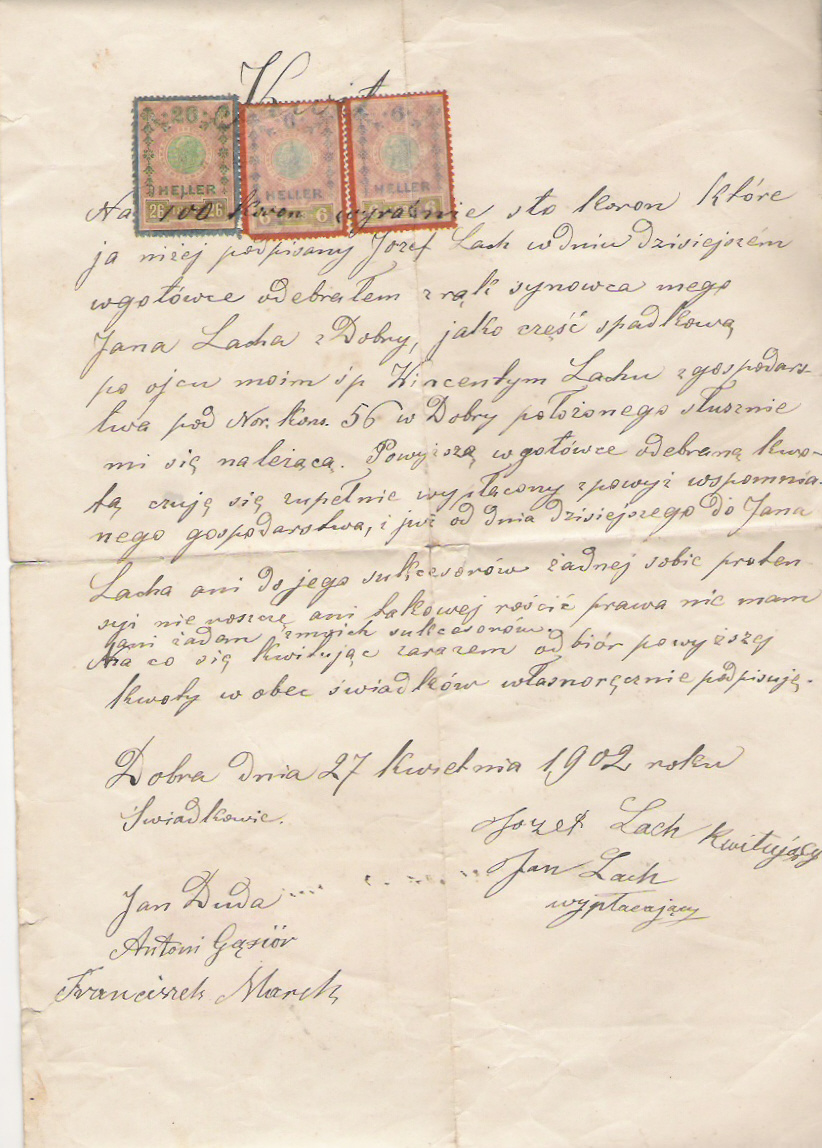 Kwit
26 6 6
HELLER HELLER HELLER
26 26 6 6 6 6
Na 100 Koron wyraźnie sto koron które
ja niżej podpisany Jozef Lach w dniu dzisiejszém
w gotówce odebrałem z rąk synowca mego
Jana Lacha z Dobry, jako część spadkową
po ojcu moim śp Wincentym Lachu z gospodars-
twa pod Nor. kons. 56 w Dobry położonego słusznie
mi się należącą. Powyższą w gotówce odebraną kwo-
tą czuję się zupełnie wypłacony z powyż wspomnia-
nego gospodarstwa, i już od dnia dzisiejszego do Jana
Lacha ani do jego sukcesorów żadnej sobie preten
syi nie roszczę ani takowej rościć prawa nie mam
ani żaden z moich sukcesorów.
Na co się kwitując zarazem odbiór powyższej
kwoty w obec świadków własnoręcznie podpisuję.
Dobra dnia 27 kwietnia 1902 roku
Świadkowie.
Jozef Lach kwitujący
Jan Lach
wypłacający
Jan Duda
Antoni Gąsiór
Franciszek Marek